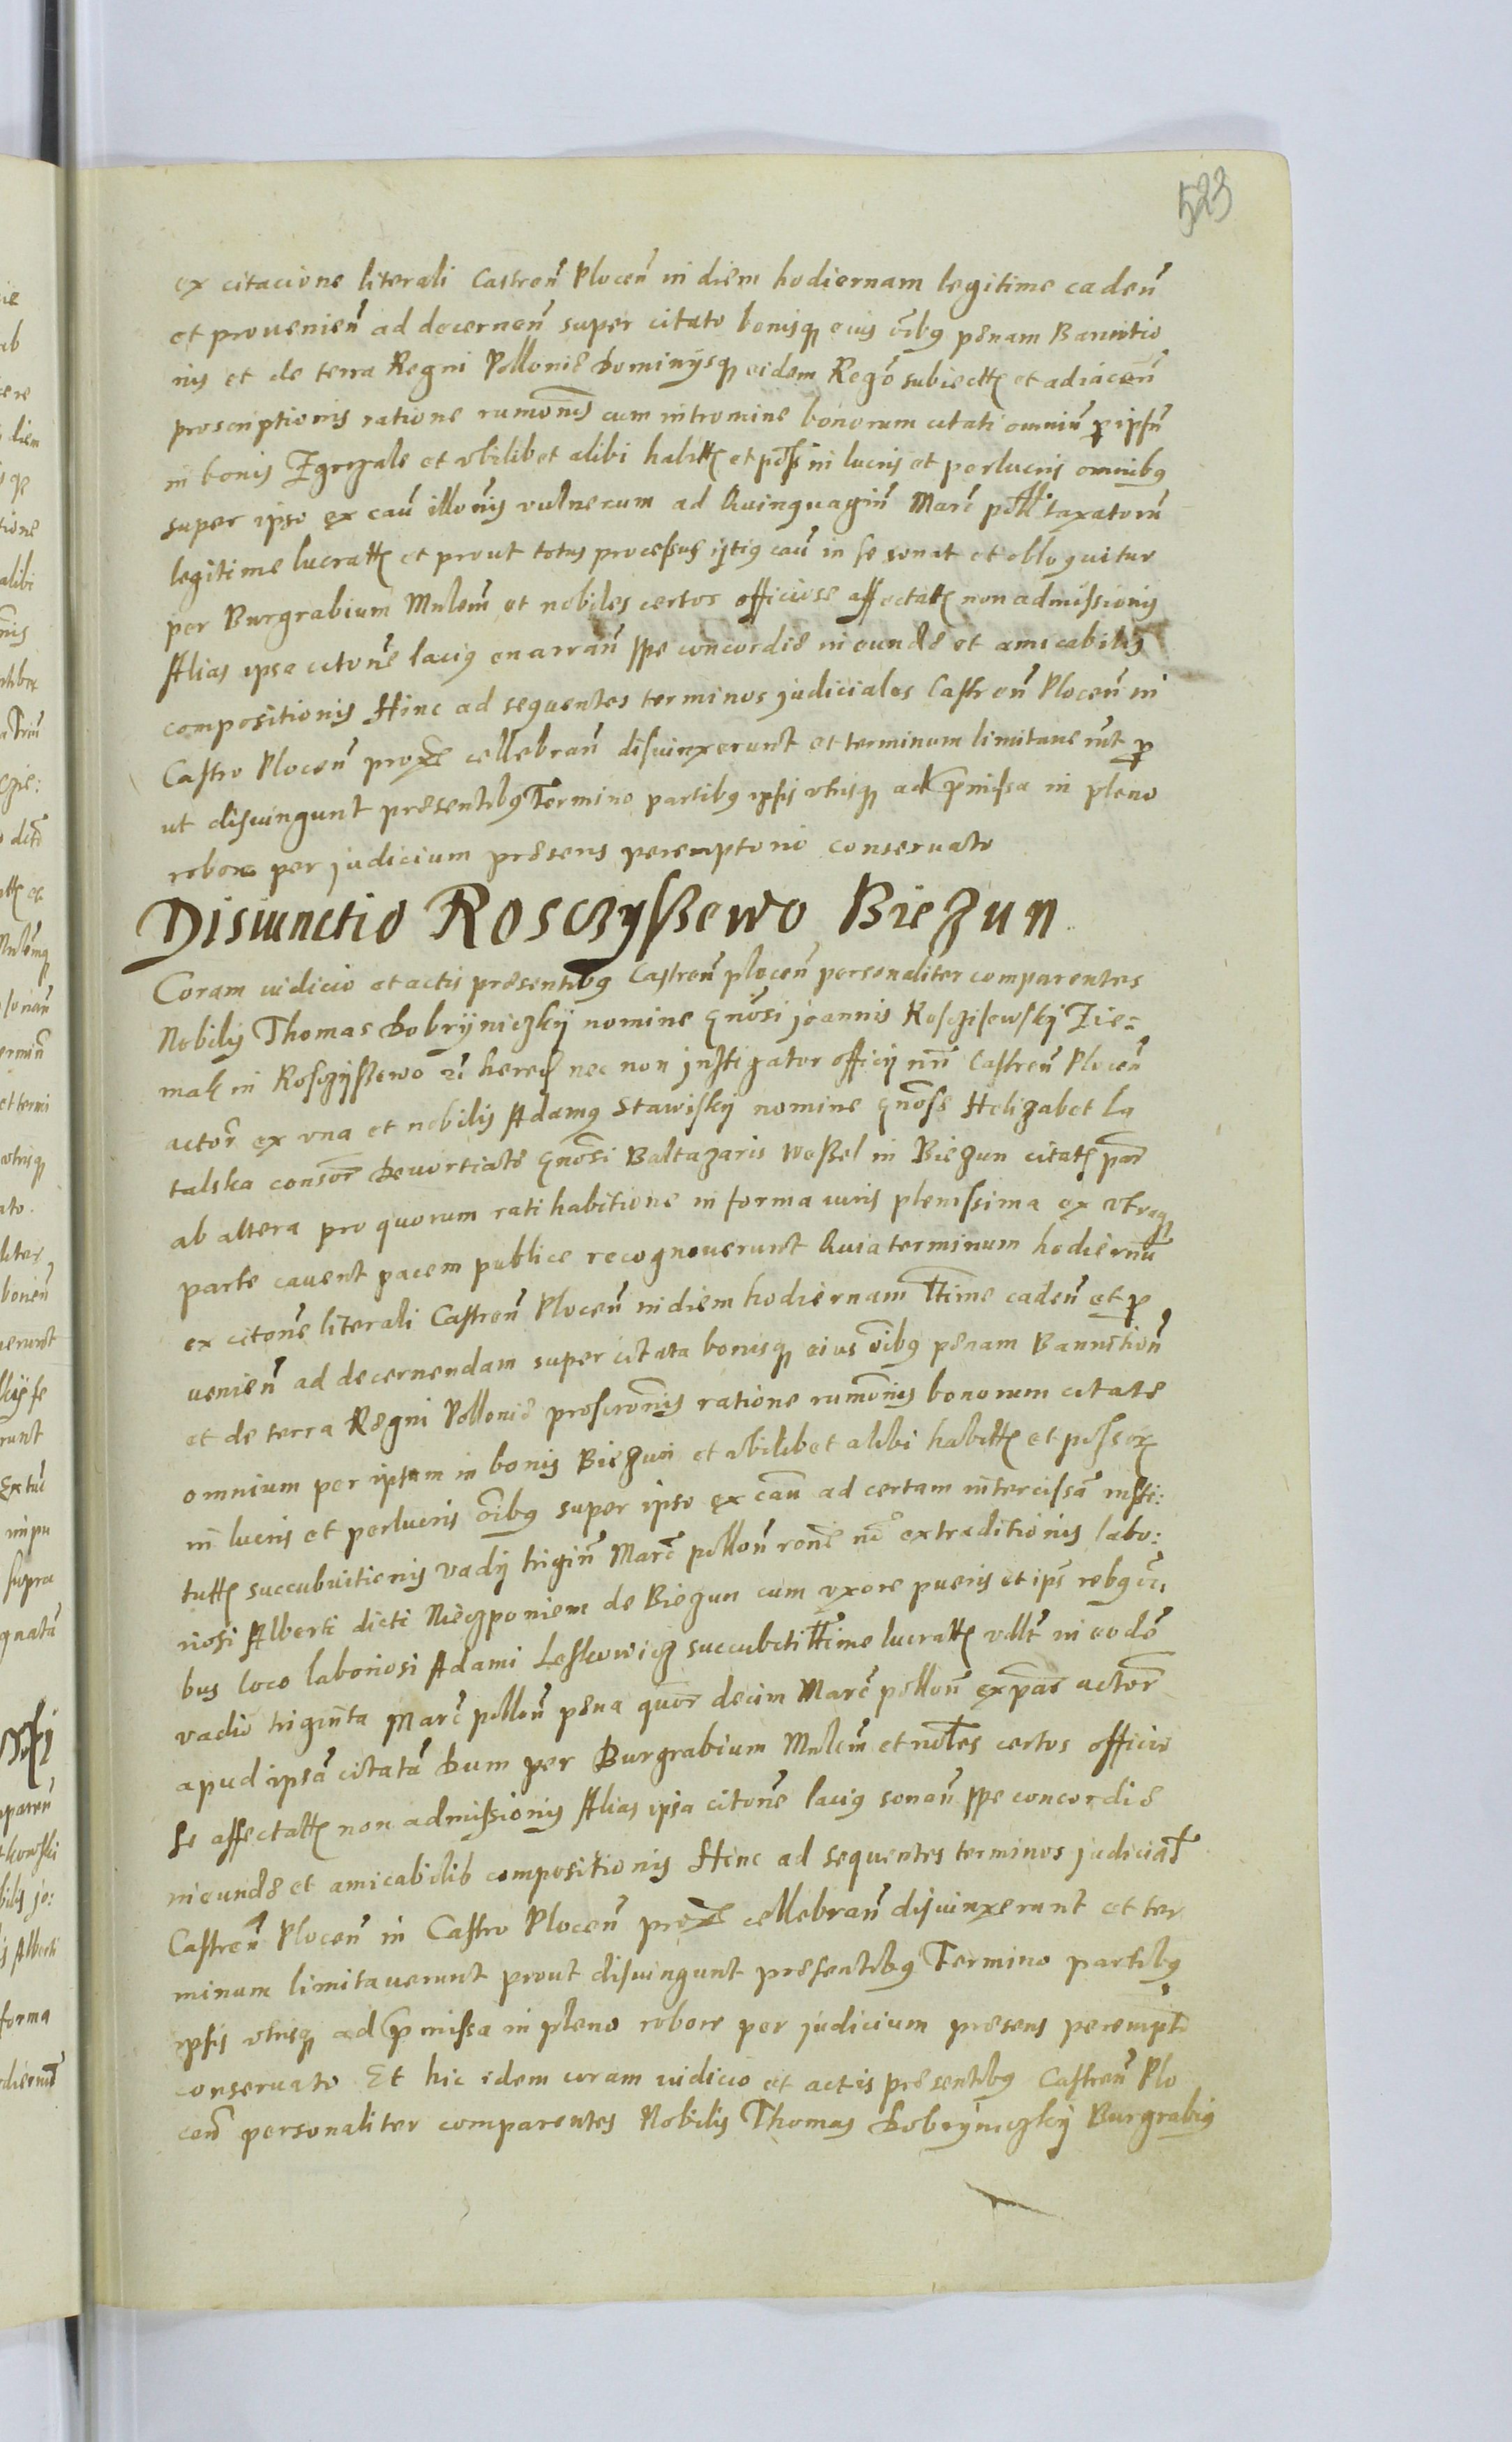 523
ex citacione literali Castren̄ Plocen̄ in diem hodiernam legitime caden̄
et provenien̄ ad decernen̄ super citato bonisq̨ eius oībus penam Bannitio
nis et de terra Regni Polloniæ Dominijsq̨ eidem Regō subiectt et adiacen̄
proscriptionis ratione rumonīs cum intromine bonorum citati omniū p̱ ipsū
in bonis et vbilibet alibi habitt et poss in lucris et perlucris omnibus
super ipso ex caū illonīs vulnerum ad Quinquagin̄ Marc̄ poll taxatorū
legitime lucratt et prout totus processus istius caū in se sonat et obloquitur
per Burgrabium Mnlem̄ et nobiles certos officiose affectatt non admissionis
Alias ipsa citone lacius enarran̄ spe concordiæ ineundæ et amicabilis
compositionis Hinc ad sequentes terminos judiciales Castren̄ Plocen̄ in
Castro Plocen̄ proxe cellebran̄ disiunxerunt et terminum limitaverunt p̱
ut disiungunt præsentibus Termino partibus ipsis vtrisq̨ ad p̄missa in pleno
robore per judicium præsens peremptorie conservato
Disiunctio Rosczyssewo Biezun
Coram iudicio et actis præsentibus Castren̄ plocen̄ personaliter comparentes
Nobilis Thomas Dobrÿniczkÿ nomine Gnōsi joannis Rosczisewskÿ Zie=
mak in Rosczÿssewo hered nec non jnstigator officij Castren̄ Plocen̄
actor̄ ex vna et nobilis Adamus Stawiskÿ nomine Gnōsæ Helizabet La
talska consor̄ Devortiatæ Gnōsi Baltazaris Wessel in Biezun citatt par̄
ab altera pro quorum rati habitione in forma iuris plenissima ex vtraq̨
parte cavent pacem publice recognoverunt Quia terminum hodiernū
ex citone literali Castren̄ Plocen̄ in diem hodiernam ltīme caden̄ et p̱
venien̄ ad decernendam super citata bonisq̨ eius oībus penam Bannition̄
et de terra Regni Polloniæ proscronīs ratione rumonīs bonorum citatæ
omnium per ipsam in bonis Biezun et vbilibet alibi habitt et possex
in lucris et perlucris oībus super ipso ex caū ad certam intercissā insti:
tutt succubuitionis vadij trigin̄ Marc̄ pollon̄ rone extraditionis labo:
riosi Alberti dicti Nieczponiem de Biezun cum vxore pueris et ips rebus
bus loco laboriosi Adami Leskowicz succubcti ltīme lucratt vdlt in eodē
vadio triginta Marc̄ pollon̄ pena quor decim Marc̄ pollon̄ ex par̄ actor̄
apud ipsā citatā Dum per Burgrabium Mnlem̄ et nobles certos officio
se affectatt non admissionis Alias ipsa citone lacius sonan̄ spe concordiæ
ineundæ et amicabilis compositionis Hinc ad sequentes terminos judicial
Castren̄ Plocen̄ in Castro Plocen̄ proxe cellebran̄ disiunxerunt et ter
minum limitaverunt prout disiungunt præsentibus Termino partibus
ipsis vtrisq̨ ad p̄missa in pleno robore per judicium præsens perempto
conservato Et hic idem coram iudicio et actis præsentibus Castren̄ Plo
cen̄ personaliter comparentes Nobilis Thomas Dobrÿniczkÿ Burgrabius